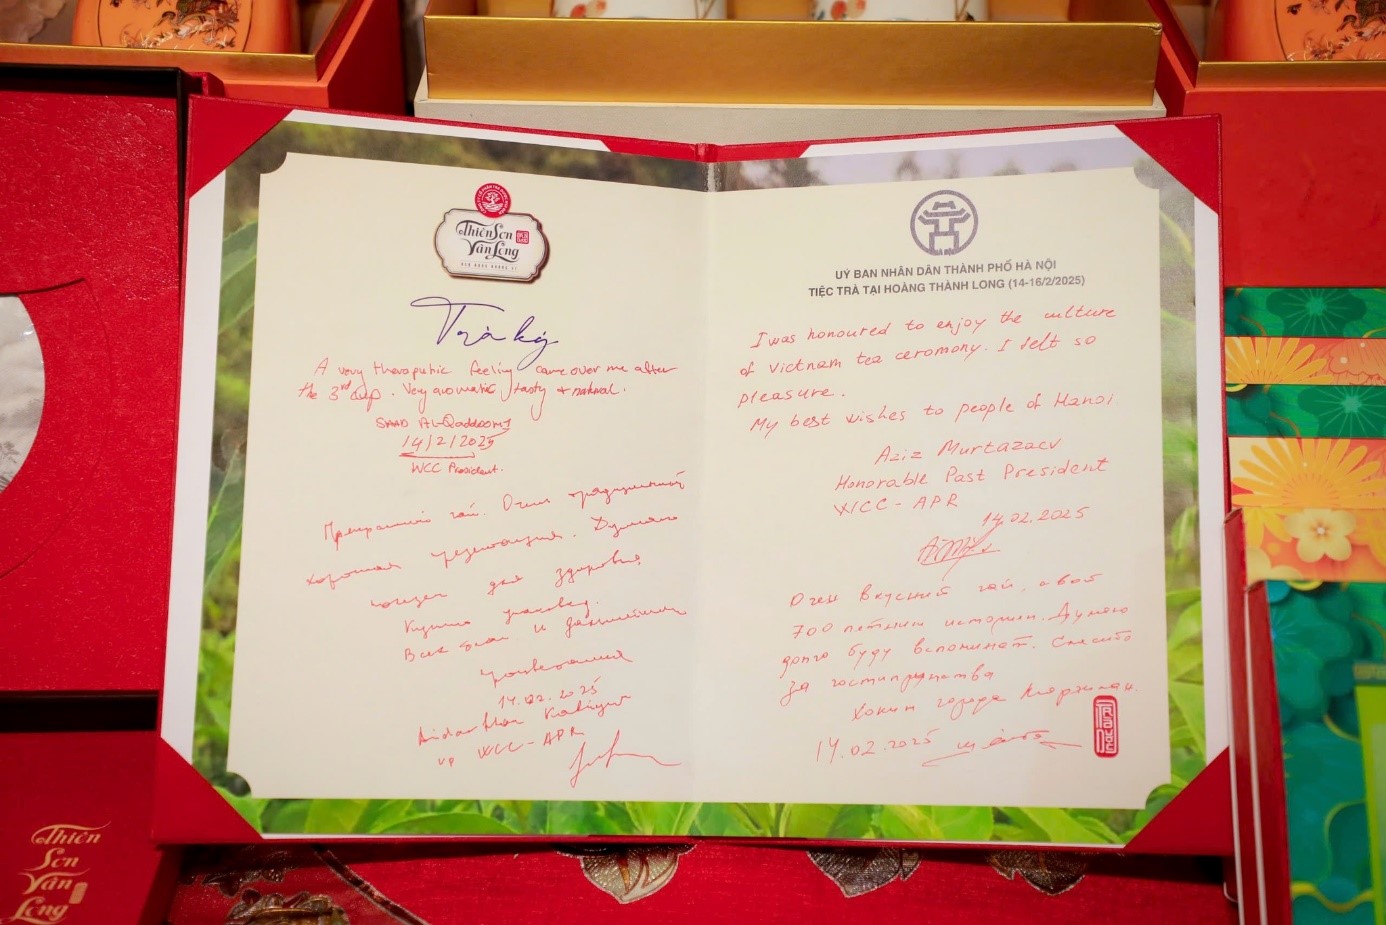 Thiên Sơn
Vân Long
Trà ký
A very theraputic feeling came over me after
the 3rd cup. Very aromatic, tasty & natural.
SAAD AL-Qaddoomi
14/2/2025
WCC President.
Прекрасный чай. Очень традиционный
хорошая презентация. Думаю
полезен для здоровья
Всех благ и дальнейших
процветания
14.02.2025
VP WCC-APR
HÀ NỘI
UỶ BAN NHÂN DÂN THÀNH PHỐ HÀ NỘI
TIỆC TRÀ TẠI HOÀNG THÀNH LONG (14-16/2/2025)
I was honoured to enjoy the culture
of Vietnam tea ceremony. I felt so
pleasure.
My best wishes to people of Hanoi
Aziz Murtazaev
Honorable Past President
WCC-APR
14.02.2025
Очень вкусный чай, с
700 летним истории. Думаю
долго буду вспоминат. Спасибо
за гостиприимства
Хоким города Маргилан.
14.02.2025
Thiên
Sơn
Vân
Long